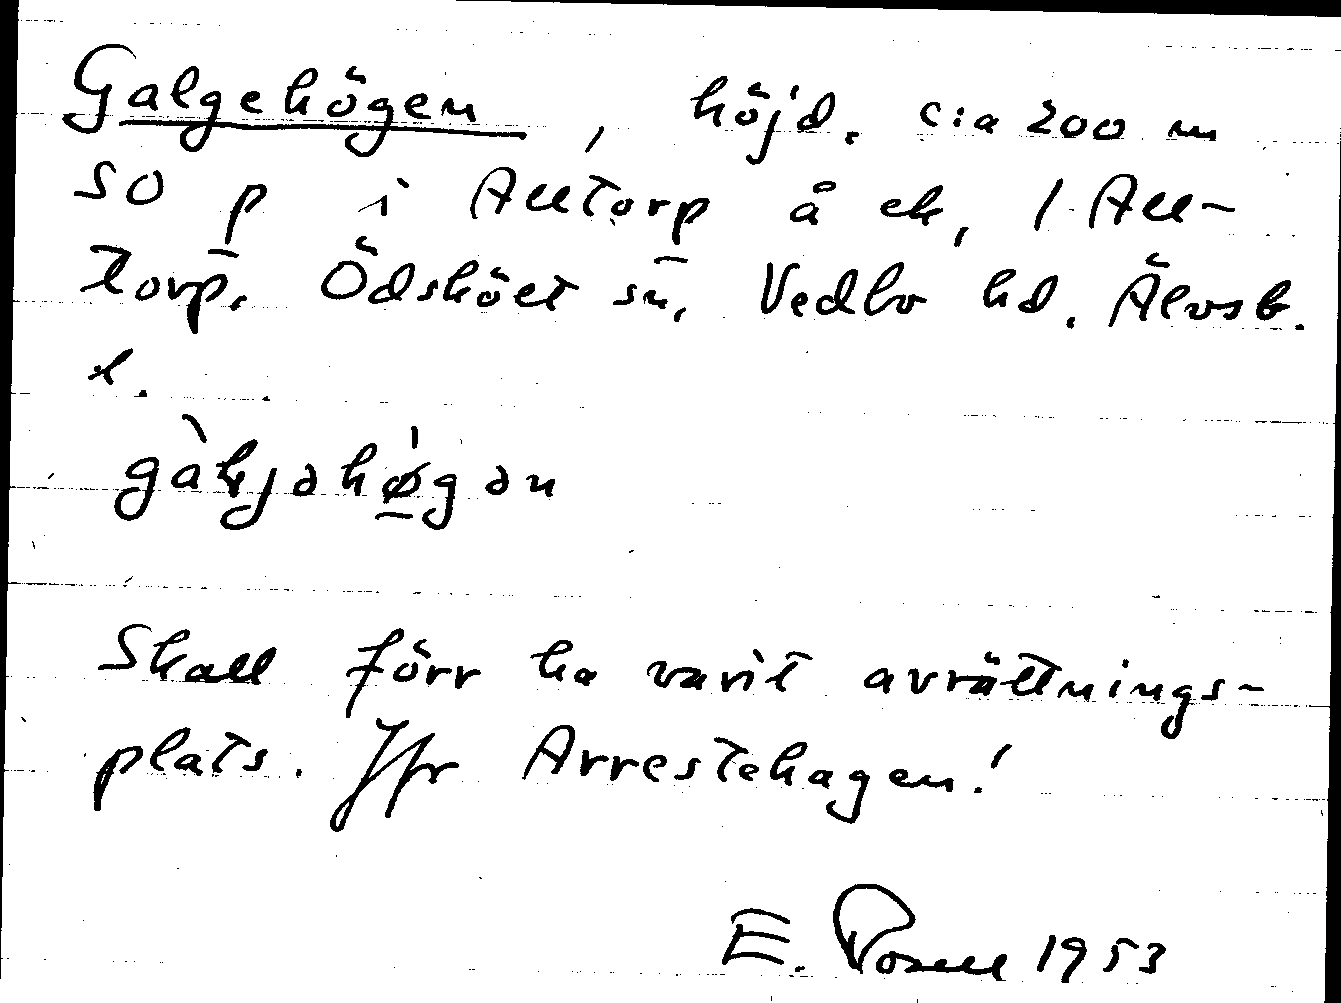 Galgehögen, höjd. c:a 200 m
SO p i Alltorp å ek, 1 All-
torp. Ödskölt sn, Vedbo hd. Älvsb.
l.
gàłjəhø̀gən
Skall förr ha varit avrättnings-
plats. Jfr Arrestehagen!
E. 1953